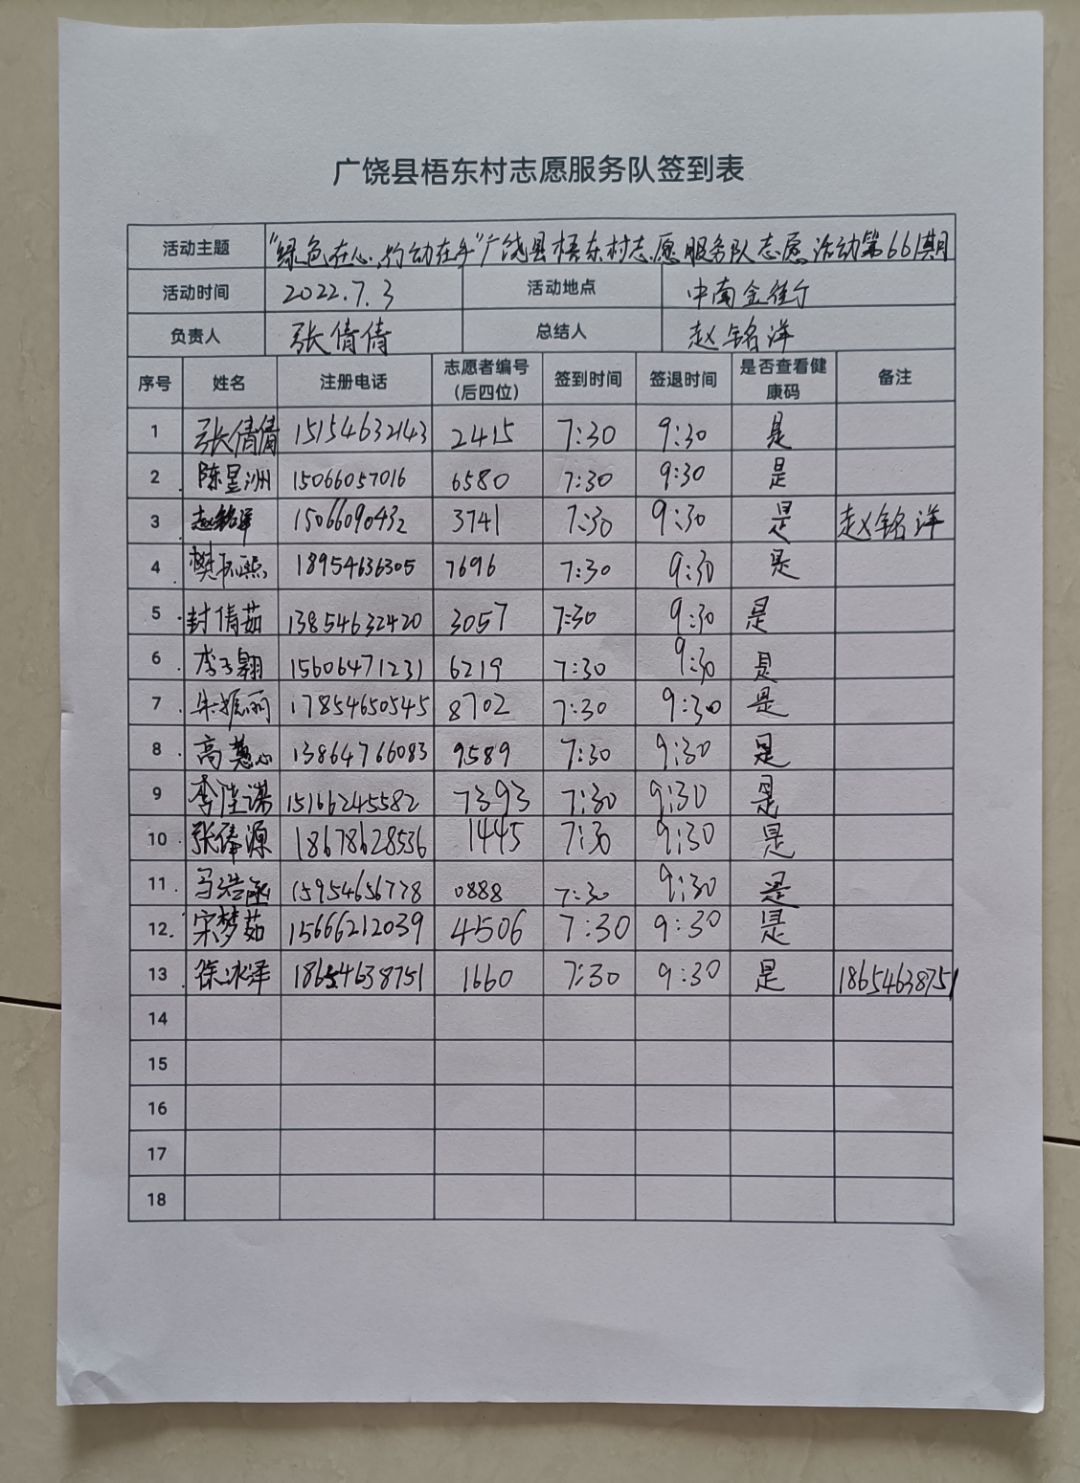 广饶县梧东村志愿服务队签到表
活动主题 "绿色在心,行动在手"广饶县梧东村志愿服务队志愿活动第661期
活动时间 2022.7.3 活动地点 中南金街
负责人 张倩倩 总结人 赵铭洋
序号 姓名 注册电话 志愿者编号(后四位) 签到时间 签退时间 是否查看健康码 备注
1 张倩倩 15154632143 2415 7:30 9:30 是
2 陈星洲 15066057016 6580 7:30 9:30 是
3 赵铭洋 15066090432 3741 7:30 9:30 是 赵铭洋
4 樊 熙 18954636305 7696 7:30 9:30 是
5 封倩茹 13854632420 3057 7:30 9:30 是
6 李子翱 15606471231 6219 7:30 9:30 是
7 朱 丽 17854650545 8702 7:30 9:30 是
8 高蕙心 13864766083 9589 7:30 9:30 是
9 李佳谋 15166245582 7393 7:30 9:30 是
10 张 源 18678628536 1445 7:30 9:30 是
11 马浩 15954656778 0888 7:30 9:30 是
12 宋梦茹 15666212039 4506 7:30 9:30 是
13 徐冰泽 18654638751 1660 7:30 9:30 是 18654638751
14
15
16
17
18